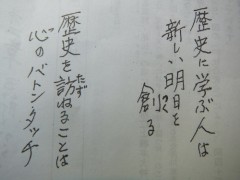 歴史に学ぶ人は
新しい明日を
創る
歴史を訪ねることは
心のバトンタッチ